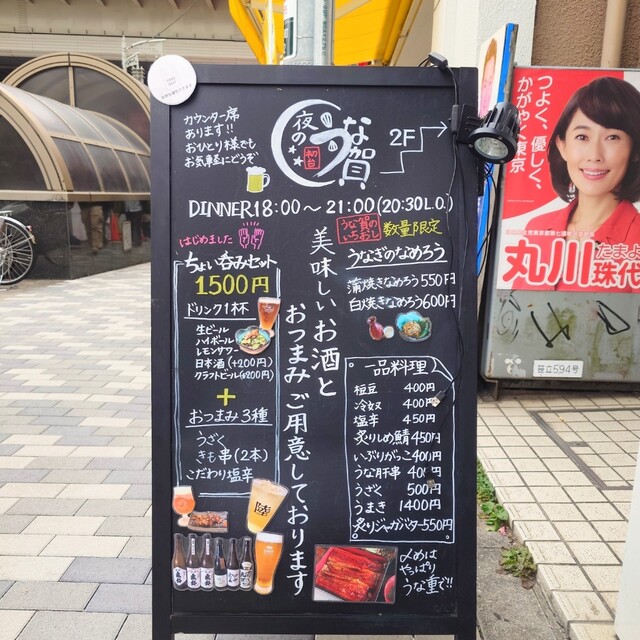 カウンター席
あります!!
おひとり様でも
お気軽にどうぞ
夜の
うな賀
初台
2F
DINNER 18:00～21:00(20:30L.O.)
はじめました
ちょい呑みセット
1500円
ドリンク1杯
生ビール
ハイボール
レモンサワー
日本酒(+200円)
クラフトビール(+200円)
+
おつまみ3種
うざく
きも串(2本)
こだわり塩辛
美味しいお酒と
おつまみご用意しております
うな賀の
いちおし
数量限定
うなぎのなめろう
蒲焼きなめろう550円
白焼きなめろう600円
一品料理
枝豆 400円
冷奴 400円
塩辛 450円
炙りしめ鯖 450円
いぶりがっこ 400円
うな肝串 400円
うざく 500円
うまき 1400円
炙りジャガバター550円
〆めは
やっぱり
うな重で!!
つよく、優しく、
かがやく東京
丸川
たまよ
珠代
笹立594号